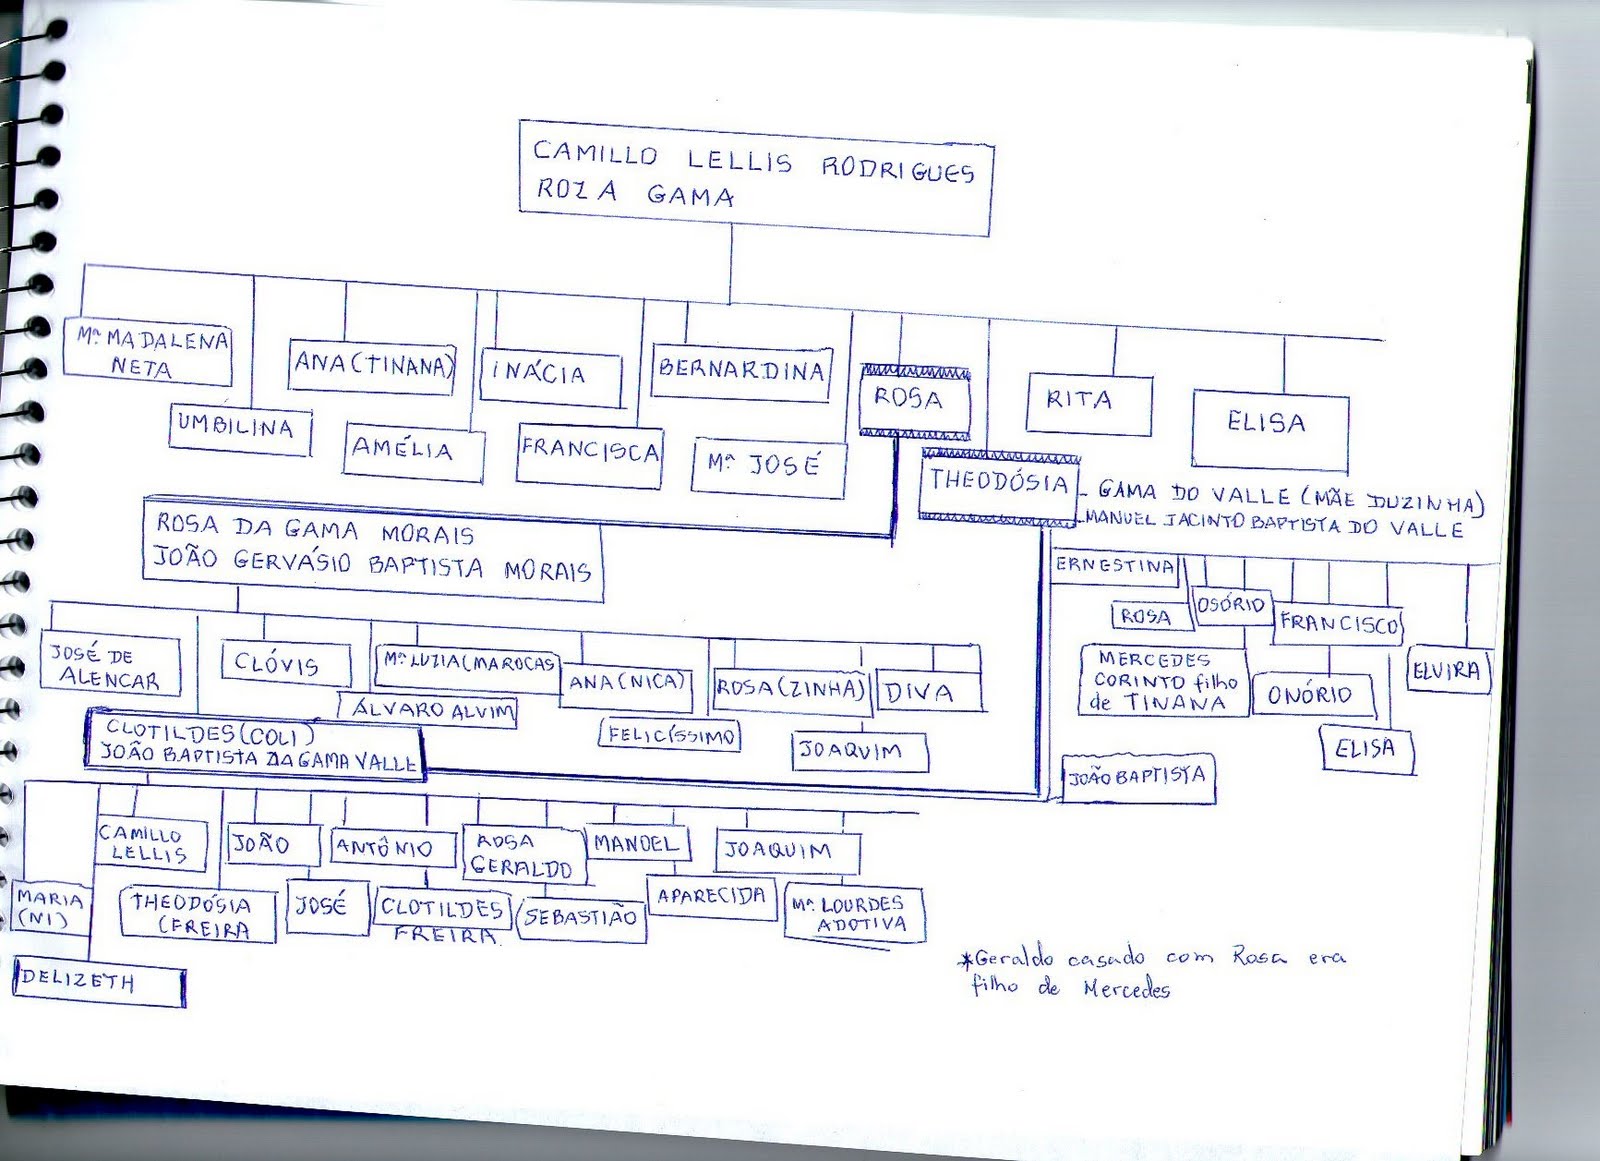 CAMILLO LELLIS RODRIGUES
ROZA GAMA
Mª MADALENA
NETA
UMBILINA
ANA (TINANA)
AMÉLIA
INÁCIA
FRANCISCA
BERNARDINA
Mª JOSÉ
ROSA
THEODÓSIA
RITA
ELISA
- GAMA DO VALLE (MÃE DUZINHA)
- MANUEL JACINTO BAPTISTA DO VALLE
ROSA DA GAMA MORAIS
JOÃO GERVÁSIO BAPTISTA MORAIS
ERNESTINA
ROSA
OSÓRIO
MERCEDES
CORINTO filho
de TINANA
FRANCISCO
ONÓRIO
ELISA
ELVIRA
JOÃO BAPTISTA
JOSÉ DE
ALENCAR
CLÓVIS
Mª LUZIA (MAROCAS
ÁLVARO ALVIM
ANA (NICA)
FELICÍSSIMO
ROSA (ZINHA)
JOAQUIM
DIVA
CLOTILDES (COLI)
JOÃO BAPTISTA DA GAMA VALLE
MARIA
(NI)
DELIZETH
CAMILLO
LELLIS
THEODÓSIA
(FREIRA
JOÃO
JOSÉ
ANTÔNIO
CLOTILDES
FREIRA
ROSA
GERALDO
SEBASTIÃO
MANOEL
APARECIDA
JOAQUIM
Mª LOURDES
ADOTIVA
*Geraldo casado com Rosa era
filho de Mercedes